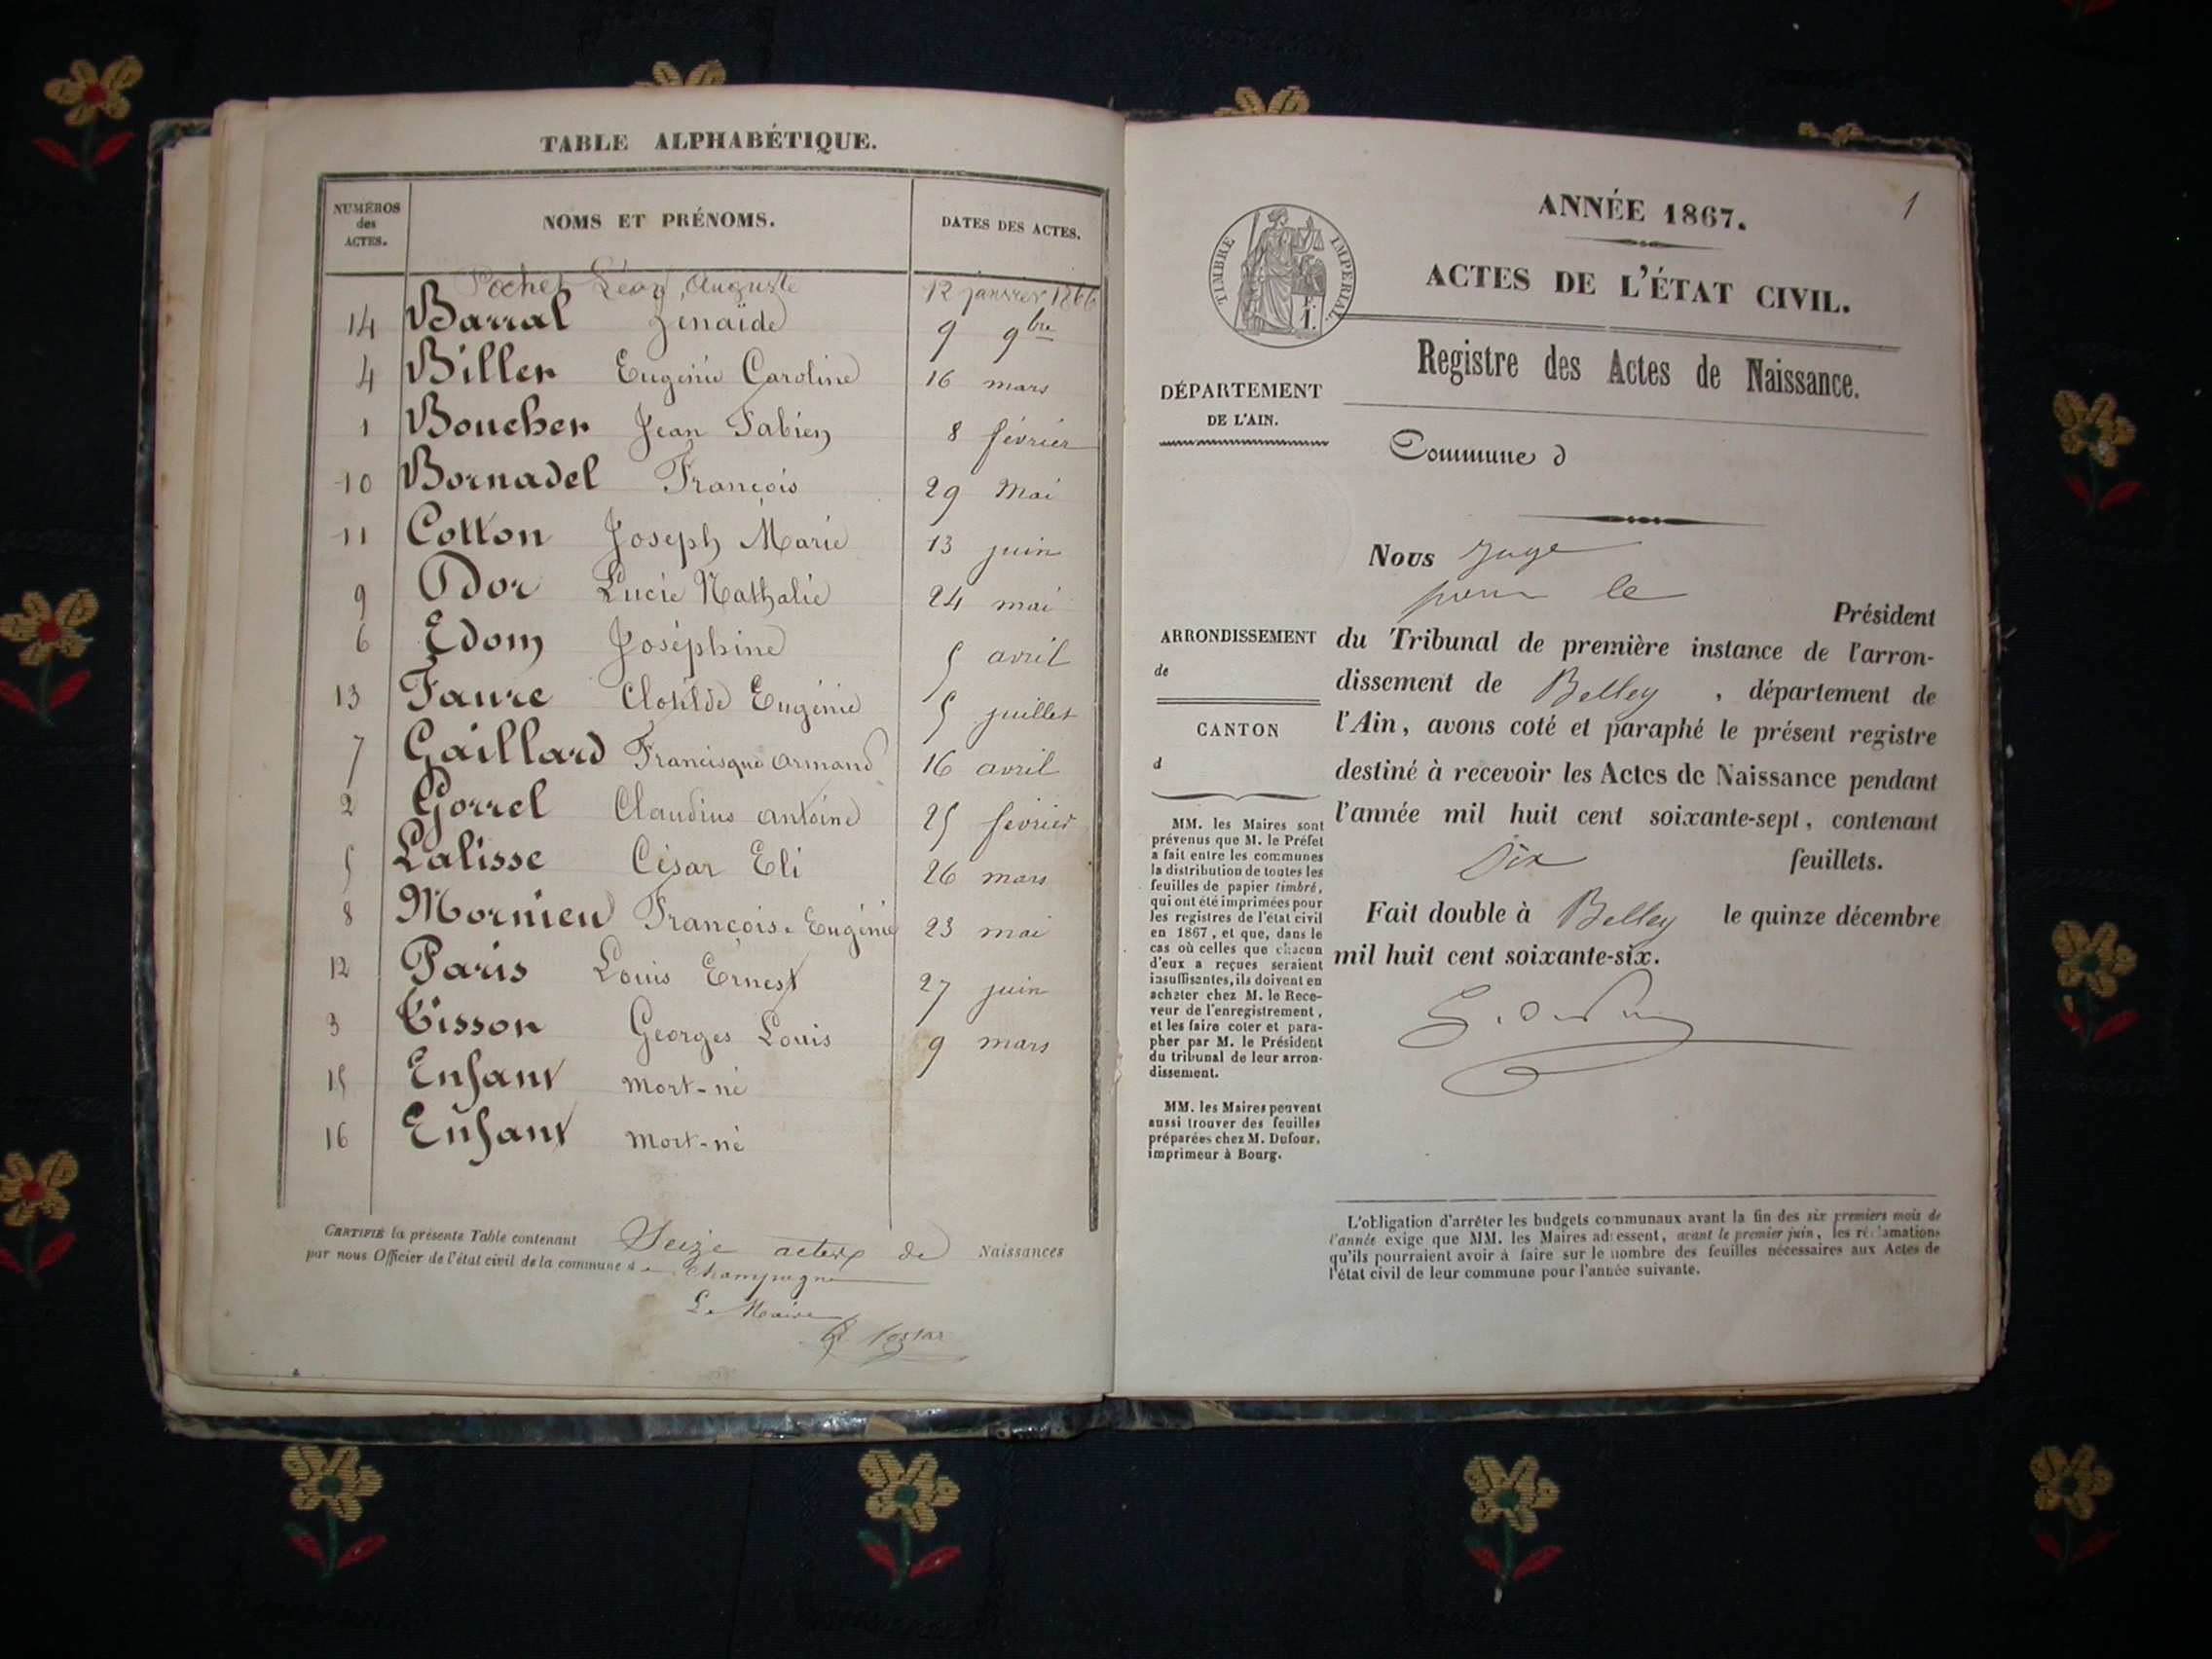 TABLE ALPHABÉTIQUE.
NUMÉROS
des
ACTES.
NOMS ET PRÉNOMS.
DATES DES ACTES.
Pochet Léon, Auguste 12 janvier 1866
14 Barral Zénaïde 9 9bre
4 Biller Eugénie Caroline 16 mars
1 Boucher Jean Fabien 8 février
10 Bornadel François 29 Mai
11 Cotton Joseph Marie 13 juin
9 Dor Lucie Nathalie 24 mai
6 Edom Joséphine 5 avril
13 Faure Clotilde Eugénie 5 juillet
7 Gaillard Francisque Armand 16 avril
2 Gorrel Claudius Antoine 25 février
5 Lalisse César Eli 26 mars
8 Mornieu François-Eugénie 23 mai
12 Paris Louis Ernest 27 juin
3 Tisson Georges Louis 9 mars
15 Enfant mort-né
16 Enfant mort-né
CERTIFIÉ la présente Table contenant Seize actes de Naissances
par nous Officier de l'état civil de la commune de Champagne
Le Maire
1
ANNÉE 1867.
ACTES DE L'ÉTAT CIVIL.
TIMBRE IMPERIAL.
Registre des Actes de Naissance.
DÉPARTEMENT
DE L'AIN.
Commune d
Nous Juge
pour le
Président
du Tribunal de première instance de l'arron-
dissement de Belley , département de
l'Ain, avons coté et paraphé le présent registre
destiné à recevoir les Actes de Naissance pendant
l'année mil huit cent soixante-sept, contenant
six feuillets.
Fait double à Belley le quinze décembre
mil huit cent soixante-six.
ARRONDISSEMENT
de
CANTON
d
MM. les Maires sont
prévenus que M. le Préfet
a fait entre les communes
la distribution de toutes les
feuilles de papier timbré,
qui ont été imprimées pour
les registres de l'état civil
en 1867, et que, dans le
cas où celles que chacun
d'eux a reçues seraient
insuffisantes, ils doivent en
acheter chez M. le Rece-
veur de l'enregistrement,
et les faire coter et para-
pher par M. le Président
du tribunal de leur arron-
dissement.
MM. les Maires peuvent
aussi trouver des feuilles
préparées chez M. Dufour,
imprimeur à Bourg.
L'obligation d'arrêter les budgets communaux avant la fin des six premiers mois de
l'année exige que MM. les Maires adressent, avant le premier juin, les réclamations
qu'ils pourraient avoir à faire sur le nombre des feuilles nécessaires aux Actes de
l'état civil de leur commune pour l'année suivante.